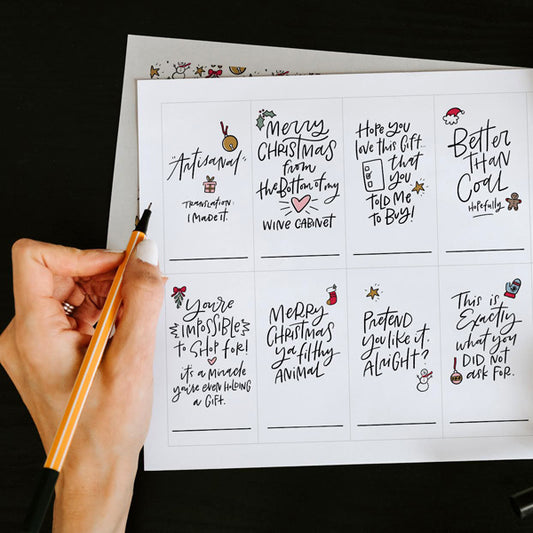 "Artisanal"
TRANSLATION:
I MADE IT.
Merry
CHRISTMAS
from
the Bottom of my
WINE CABINET
Hope you
love this Gift...
that
you
TOLD ME
to Buy!
Better
THAN
COAL
Hopefully.
You're
IMPOSSIBLE
to SHOP for!
it's a MIRACLE
you're even HOLDING
a GIFT.
MERRY
CHRISTMAS
ya filthy
ANIMAL
PRETEND
you like it.
ALRIGHT?
This is
Exactly
what you
DID NOT
ask FOR.